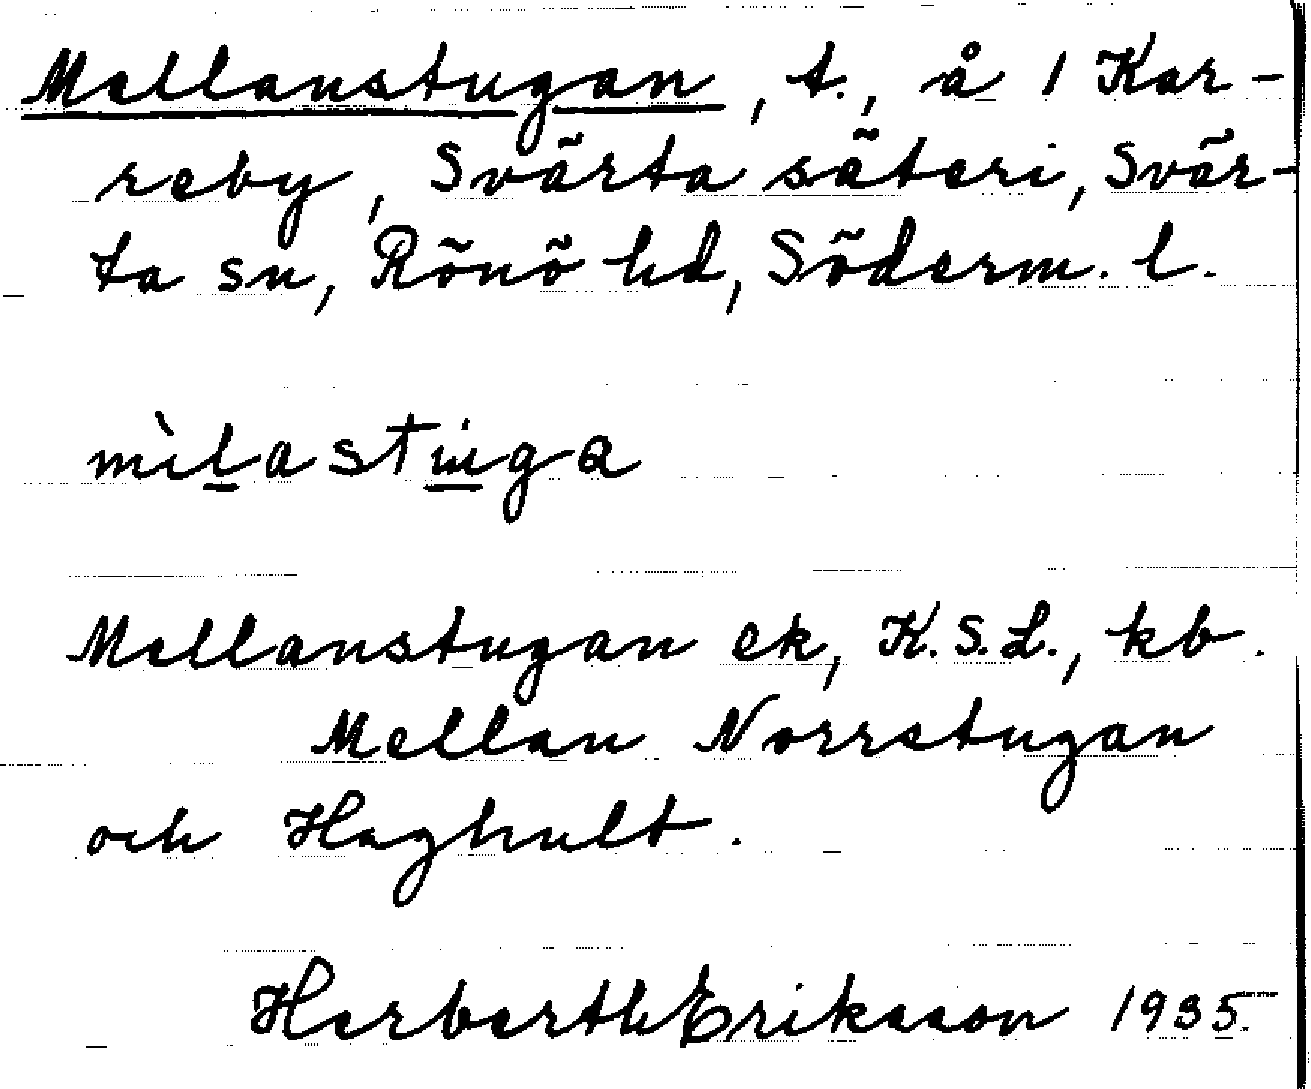 Mellanstugan, t., å 1 Kar-
reby, Svärta säteri, Svär-
ta sn, Rönö hd, Söderm. l.
mìlastųga
Mellanstugan ek, K.S.L., kb.
Mellan Norrstugan
och Haghult.
Herberth Eriksson 1935.